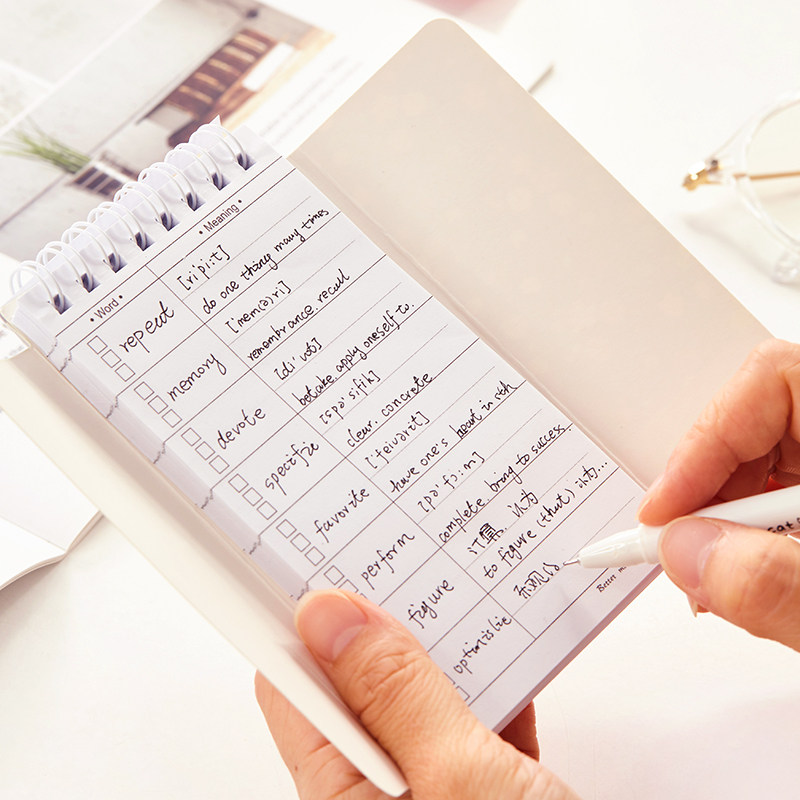 • Word •
• Meaning •
repeat
[ri'pi:t]
do one thing many times
memory
['mem(ə)ri]
remembrance. recall
devote
[di'vəʊt]
betake apply oneself to.
[spə'sifik]
clear. concrete
favorite
['feivərit]
have one's heart in sth
perform
[pə'fɔ:m]
complete. bring to success.
figure
计量. 认为
to figure (that) 认为...
乐观的
Better